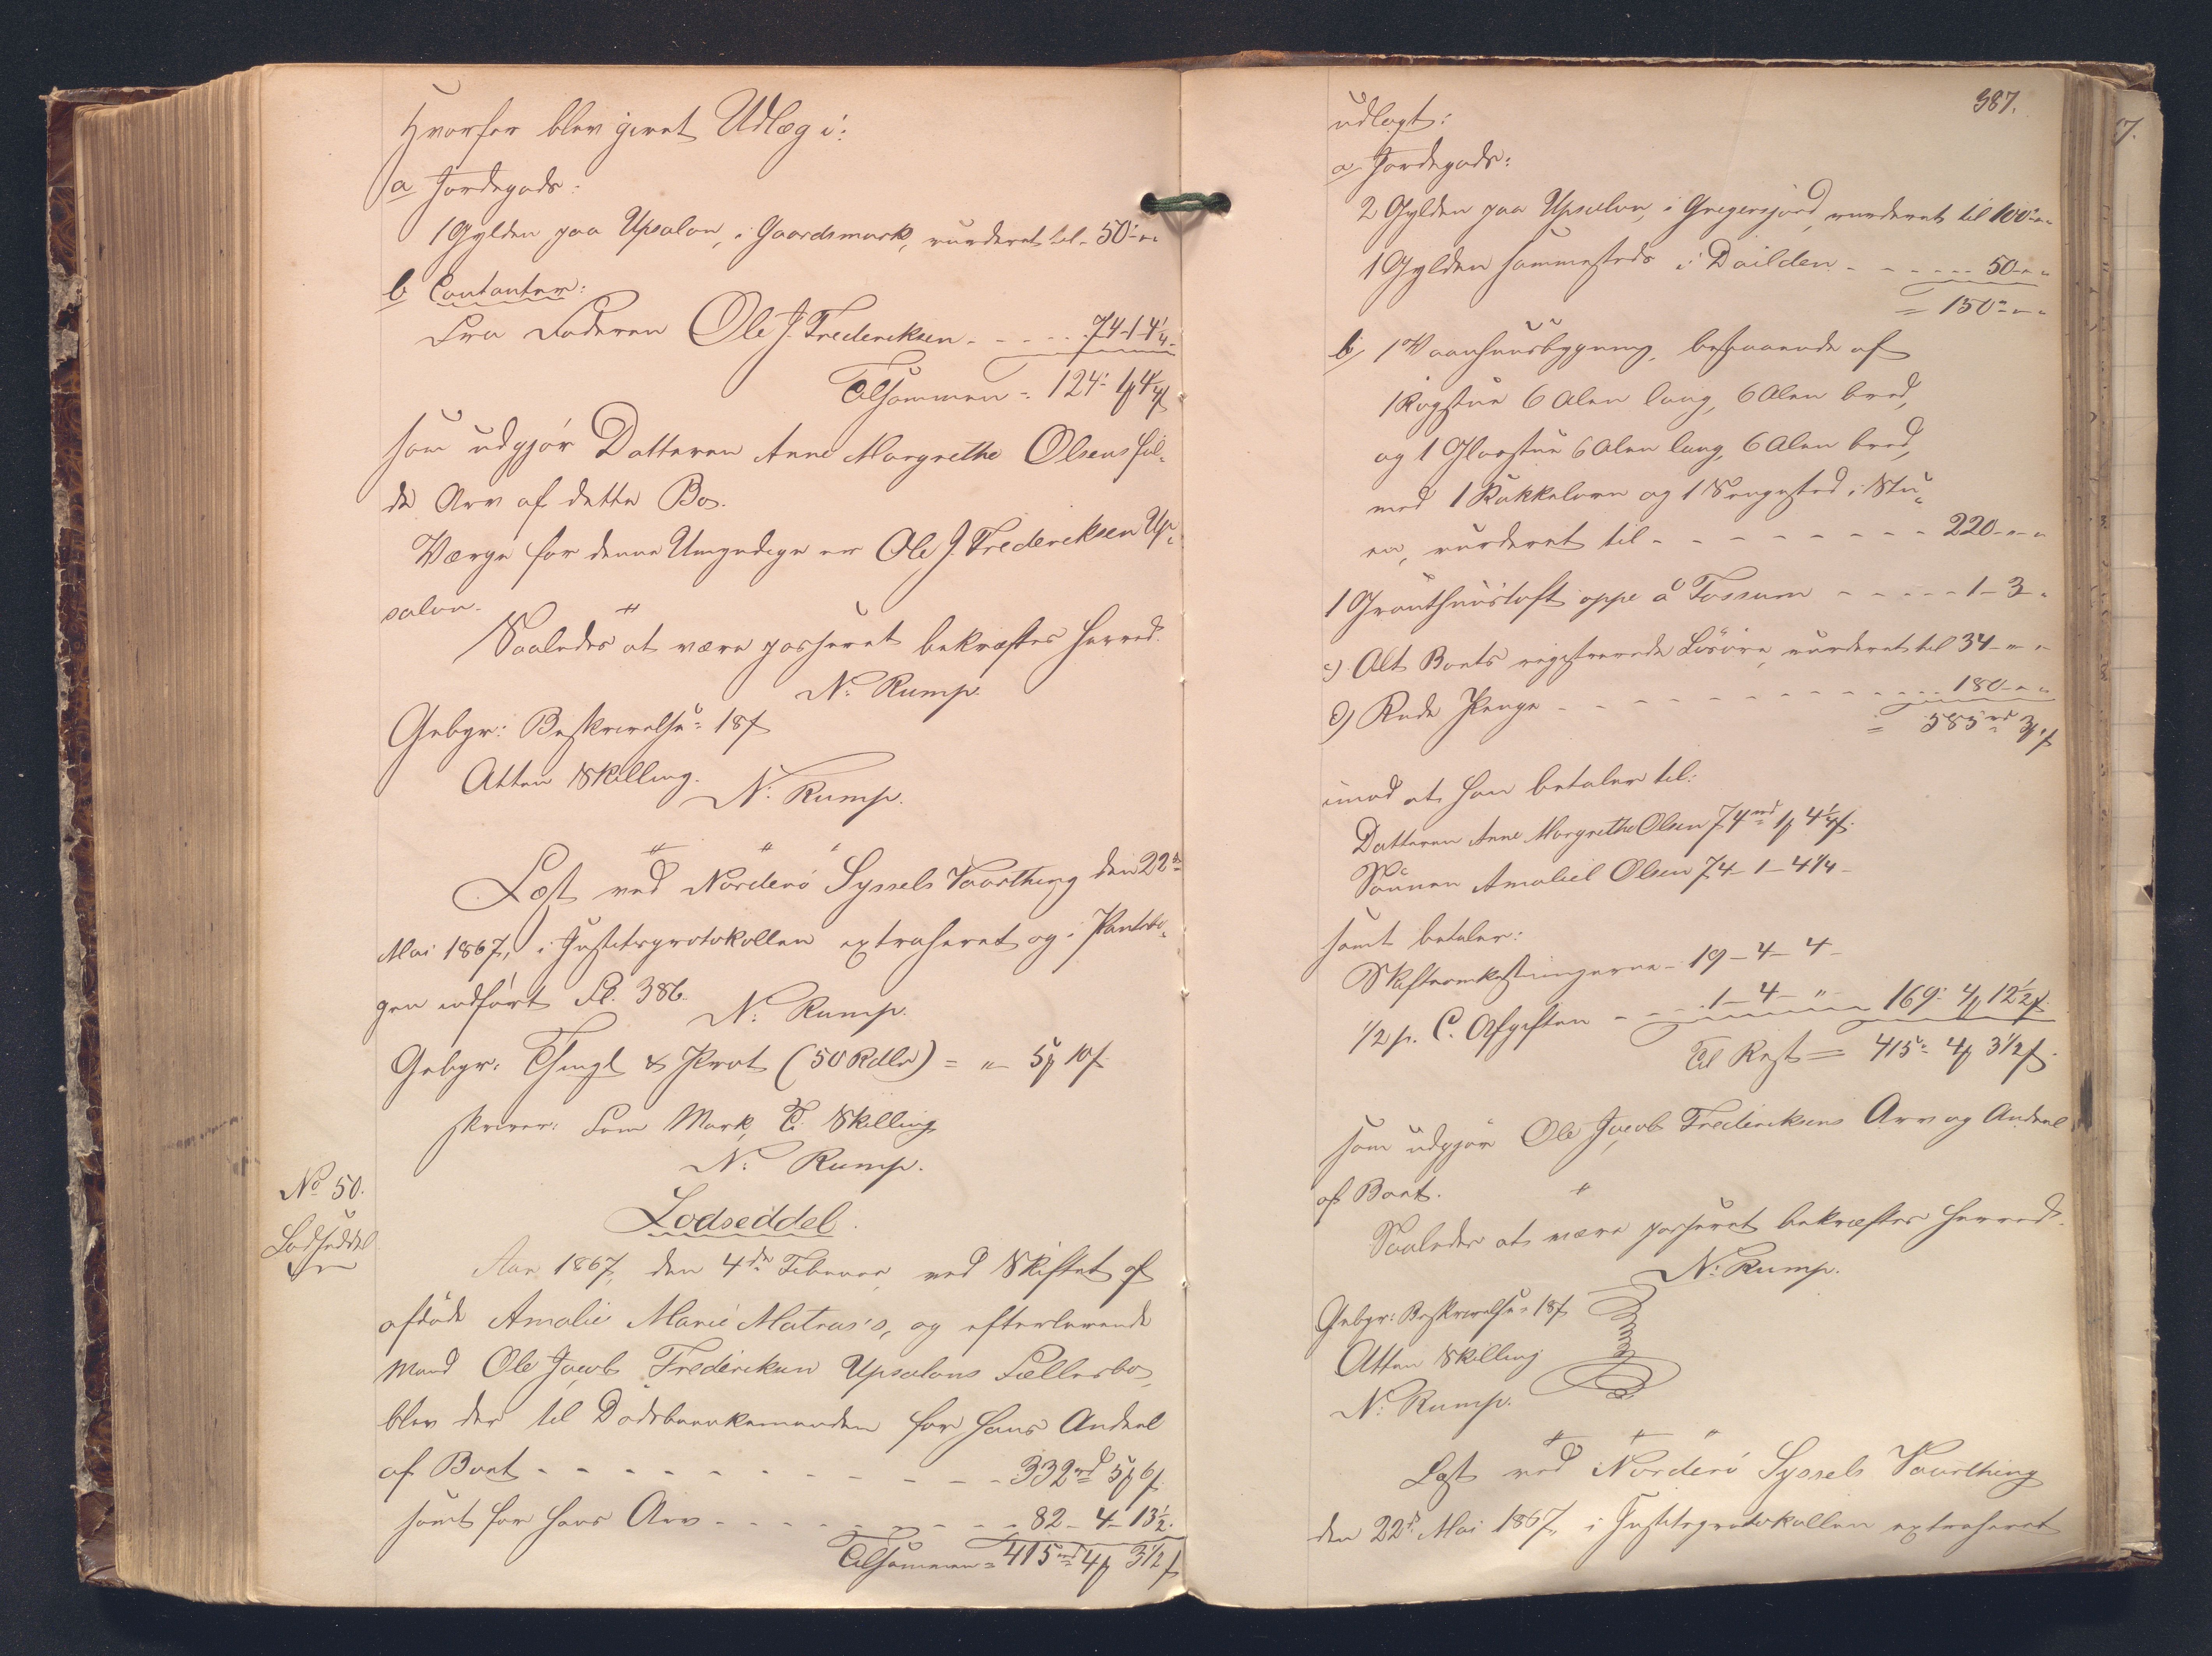 Hvorfor blev givet Udlæg i:
a Jordegods:
1 Gylden paa Upsalon, i Gaardsmark, vurderet til - 50 „ „
b Contanter:
Fra Faderen Ole J. Frederiksen - - - - - 74-1-4¼ -
Tilsammen = 124 1 4¼
som udgjør Datteren Anne Margrethe Olsens ful-
de Arv af dette Bo.
Værge for denne Umyndige er Ole J. Frederiksen Up-
salon.
Saaledes at være passeret bekræftes herved.
N: Rump.
Gebyr: Beskrivelse = 18 s
Atten Skilling.
N: Rump.
Læst ved Norderö Syssels Vaarthing den 22de
Mai 1867, i Justitsprotokollen extraheret og i Pantebo-
gen indført Fl. 386.
N: Rump.
Gebyr: Thingl & Prot (50 Rdlr) = „ 5 10
skriver: Fem Mark, Ti Skilling
N: Rump.
No 50.
Lodseddel
Lodseddel.
Aar 1867, den 4de Februar ved Skiftet af
afdøde Amalie Marie Matras's, og efterlevende
Mand Ole Jacob Frederiksen Upsalons Fællesbo,
blev der til Dødsboenkemanden for hans Andeel
af Boet - - - - - - - - - - - 332 rd 5 6
samt for hans Arv - - - - - - - - 82 - 4 - 13½.
Tilsammen = 415 rd 4 3½
387.
udlagt:
a Jordegods:
2 Gylden paa Upsalon, i Gregersjord, vurderet til 100 „ „
1 Gylden sammesteds i Dailden - - - - - 50 - „ „
= 150 „ „
b, 1 Vaanhuusbygning, bestaaende af
1 Rogstue 6 Alen lang, 6 Alen bred,
og 1 Glasstue 6 Alen lang, 6 Alen bred,
med 1 Kakkelovn og 1 Sengested i Stu-
en, vurderet til - - - - - - - - - 220 - „ „
1 Grauthuusloft oppe å Fossum - - - - - 1 - 3 - „
c) Alt Boets registrerede Løsøre, vurderet til 34 - „ „
d) Rede Penge - - - - - - - - - - - 180 - „ „
= 585 rd 3
imod at han betaler til:
Datteren Anne Margrethe Olsen 74 rd 1 4¼
Sønnen Amaliel Olsen 74 - 1 - 4¼ -
samt betaler:
Skifteomkostningerne - 19 - 4 - 4 -
½ p. C. Afgiften - - - 1 - 4 - „ 169 4 12½
Til Rest = 415 4 3½
som udgjør Ole Jacob Frederiksens Arv og Andeel
af Boet.
Saaledes at være passeret bekræftes herved.
N: Rump.
Gebyr: Beskrivelse = 18 s
Atten Skilling
N: Rump.
Læst ved Norderö Syssels Vaarthing
den 22de Mai 1867, i Justitsprotokollen extraheret